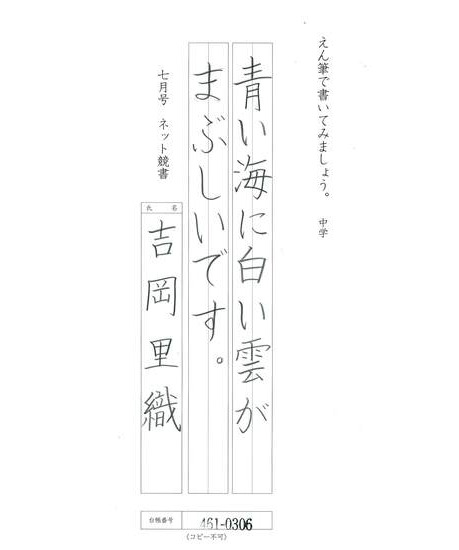 えん筆で書いてみましょう。 中学
青い海に白い雲が
まぶしいです。
七月号 ネット競書
氏名
吉岡里織
台帳番号
461-0306
(コピー不可)